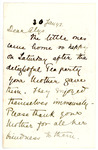 Dear Olga
The little ones
came home so happy
on Saturday after the
delightful Tea party
your Mother gave
them. They enjoyed
themselves immensely.
Please thank your
Mother for all her
kindness to them